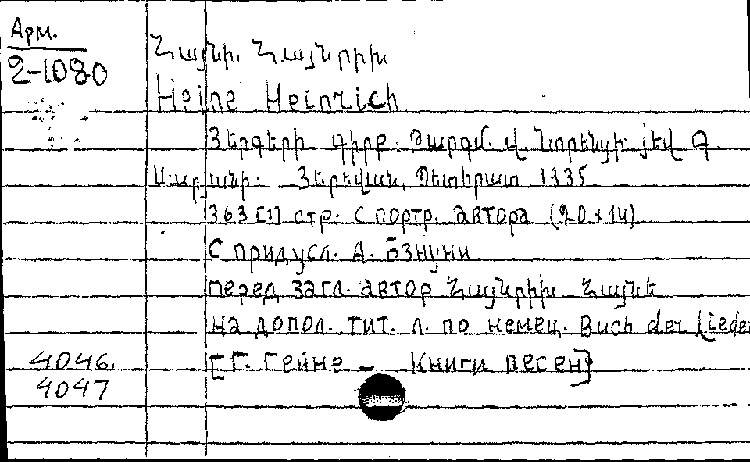 Арм.
2-1080
Հայնե, Հայնրիխ
Heine Heinrich
Յերգերի գիրք. Թարգմ. Վ. Նորենցի յեվ Գ
Սարյանի. Յերեվան, Պետհրատ 1935
363 [1] стр. с портр. автора (20×14)
С предисл. А.
перед загл. автор Հայնրիխ Հայնե
на допол. тит. л. по немец. Buch der Lieder
[Г. Гейне – Книги песен]
4046,
4047